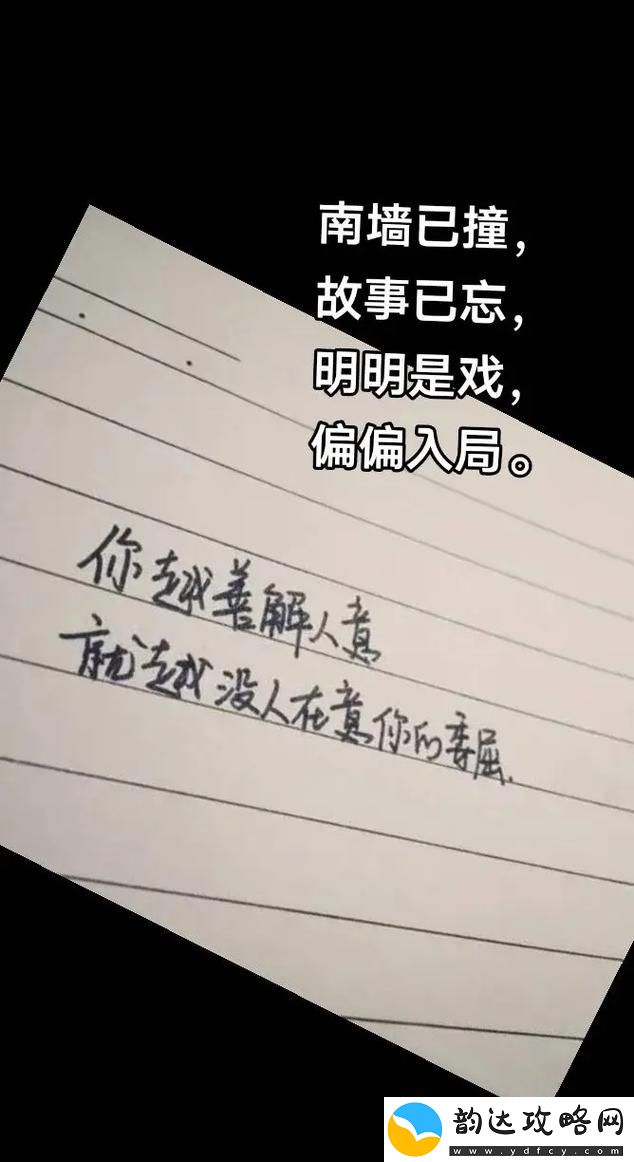 南墙已撞，
故事已忘，
明明是戏，
偏偏入局。
你越善解人意
就越没人在意你的委屈.
韵达攻略网
www.ydfcy.com